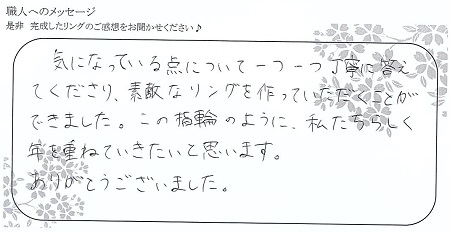 職人へのメッセージ
是非 完成したリングのご感想をお聞かせください♪
気になっている点について一つ一つ丁寧に答え
てくださり、素敵なリングを作っていただくことが
できました。この指輪のように、私たちらしく
年を重ねていきたいと思います。
ありがとうございました。